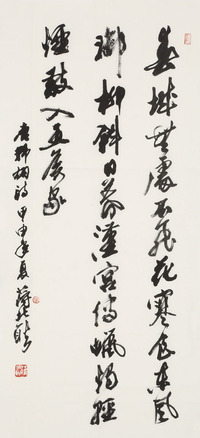 春城無處不飛花寒食東風
御柳斜日暮漢宮傳蠟燭輕
煙散入五侯家
唐韓翃詩甲申年夏